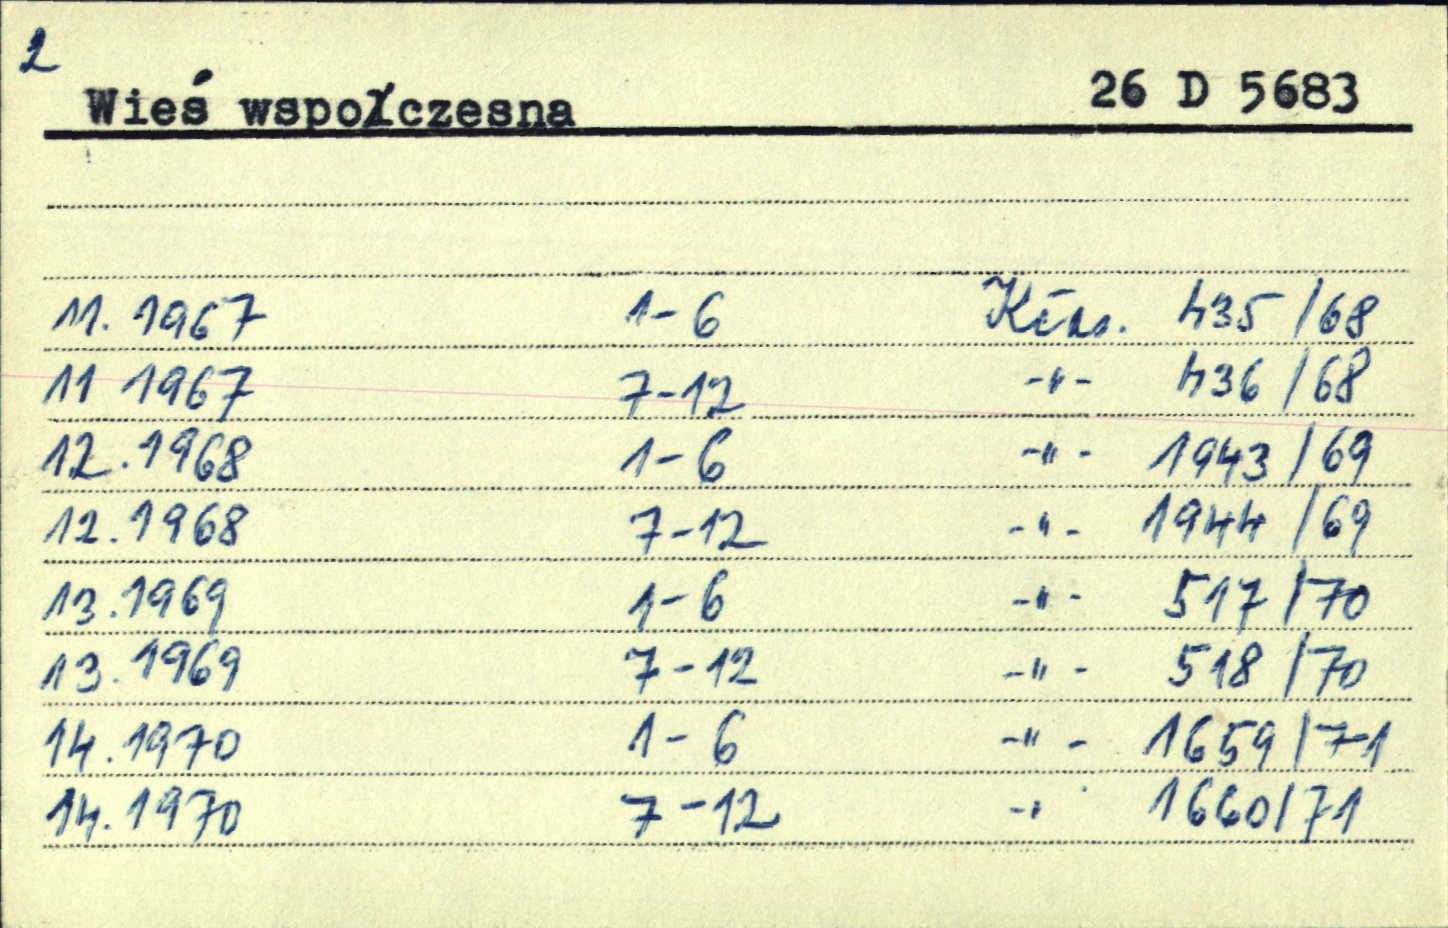 2
Wieś wspołczesna 26 D 5683
11. 1967 1-6 435/68
11 1967 7-12 -"- 436/68
12. 1968 1-6 -"- 1943/69
12. 1968 7-12 -"- 1944/69
13. 1969 1-6 -"- 517/70
13. 1969 7-12 -"- 518/70
14. 1970 1-6 -"- 1659/71
14. 1970 7-12 -"- 1660/71